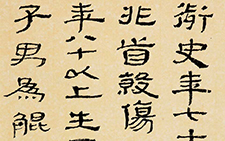 御史年七十
非首殺傷
年八十以上生
子男為鯤